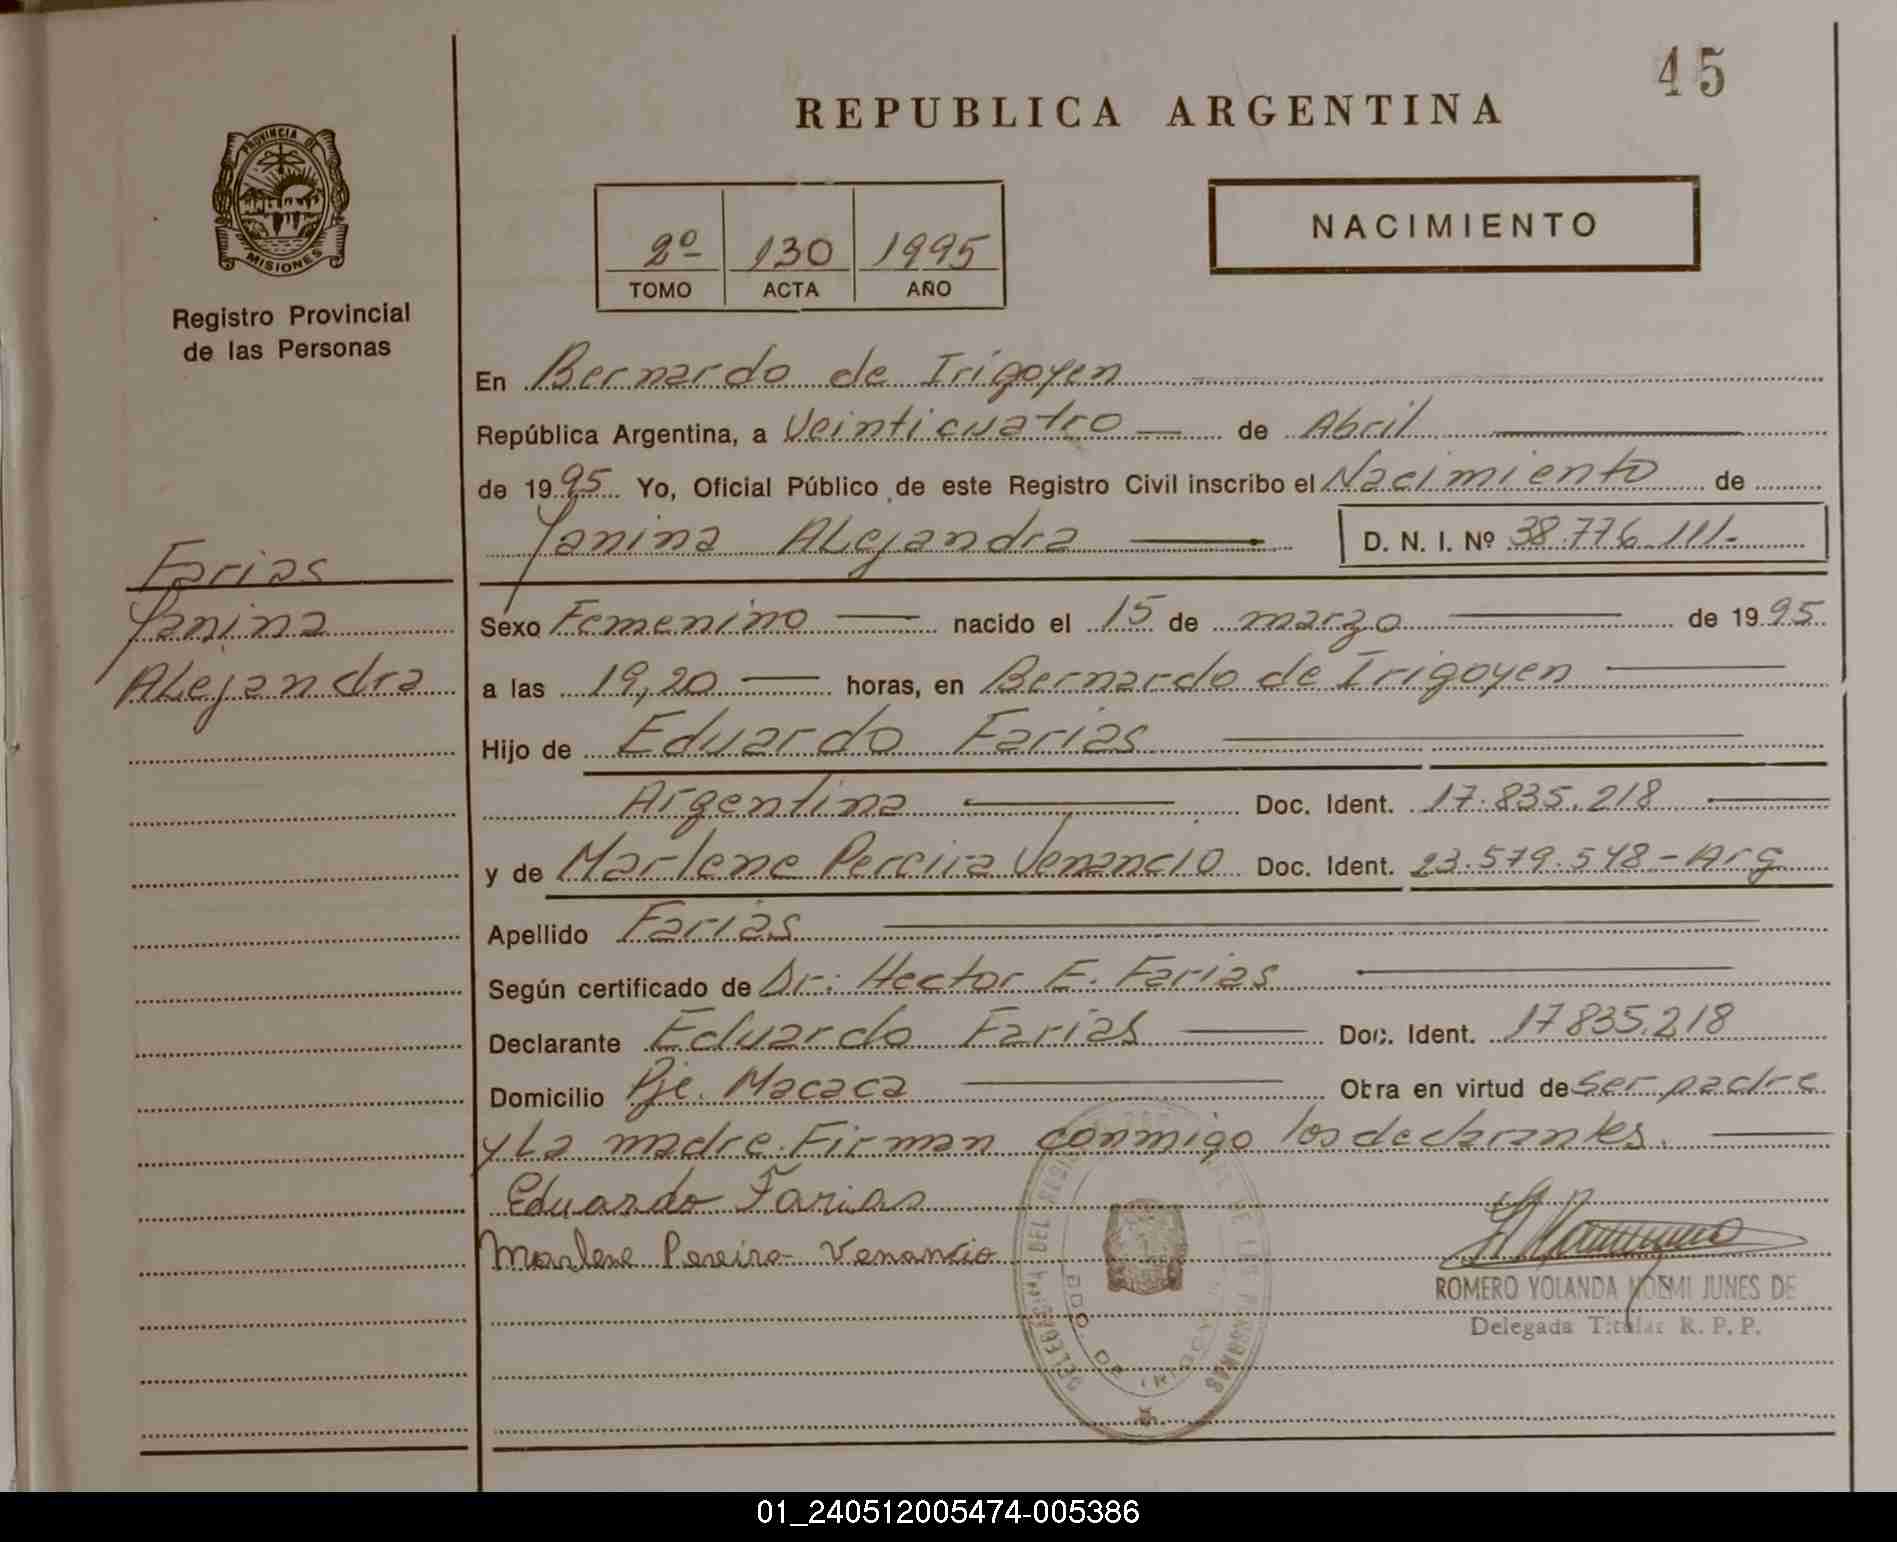 45
REPUBLICA ARGENTINA
PROVINCIA DE
MISIONES
Registro Provincial
de las Personas
2º 130 1995
TOMO ACTA AÑO
NACIMIENTO
En Bernardo de Irigoyen
República Argentina, a Veinticuatro de Abril
de 1995 Yo, Oficial Público de este Registro Civil inscribo el Nacimiento de
Yanina Alejandra D. N. I. Nº 38.776.111-
Farias
Yanina
Alejandra
Sexo Femenino nacido el 15 de marzo de 1995
a las 19,20 horas, en Bernardo de Irigoyen
Hijo de Eduardo Farias
Argentina Doc. Ident. 17.835.218
y de Marlene Pereira Venancio Doc. Ident. 23.579.548-Arg
Apellido Farias
Según certificado de Dr: Hector E. Farias
Declarante Eduardo Farias Doc. Ident. 17835.218
Domicilio Pje. Macaca Obra en virtud de ser padre
y La madre. Firman conmigo los declarantes.
Eduardo Farias
Marlene Pereira Venancio
ROMERO YOLANDA NOEMI JUNES DE
Delegada Titular R. P. P.
01_240512005474-005386